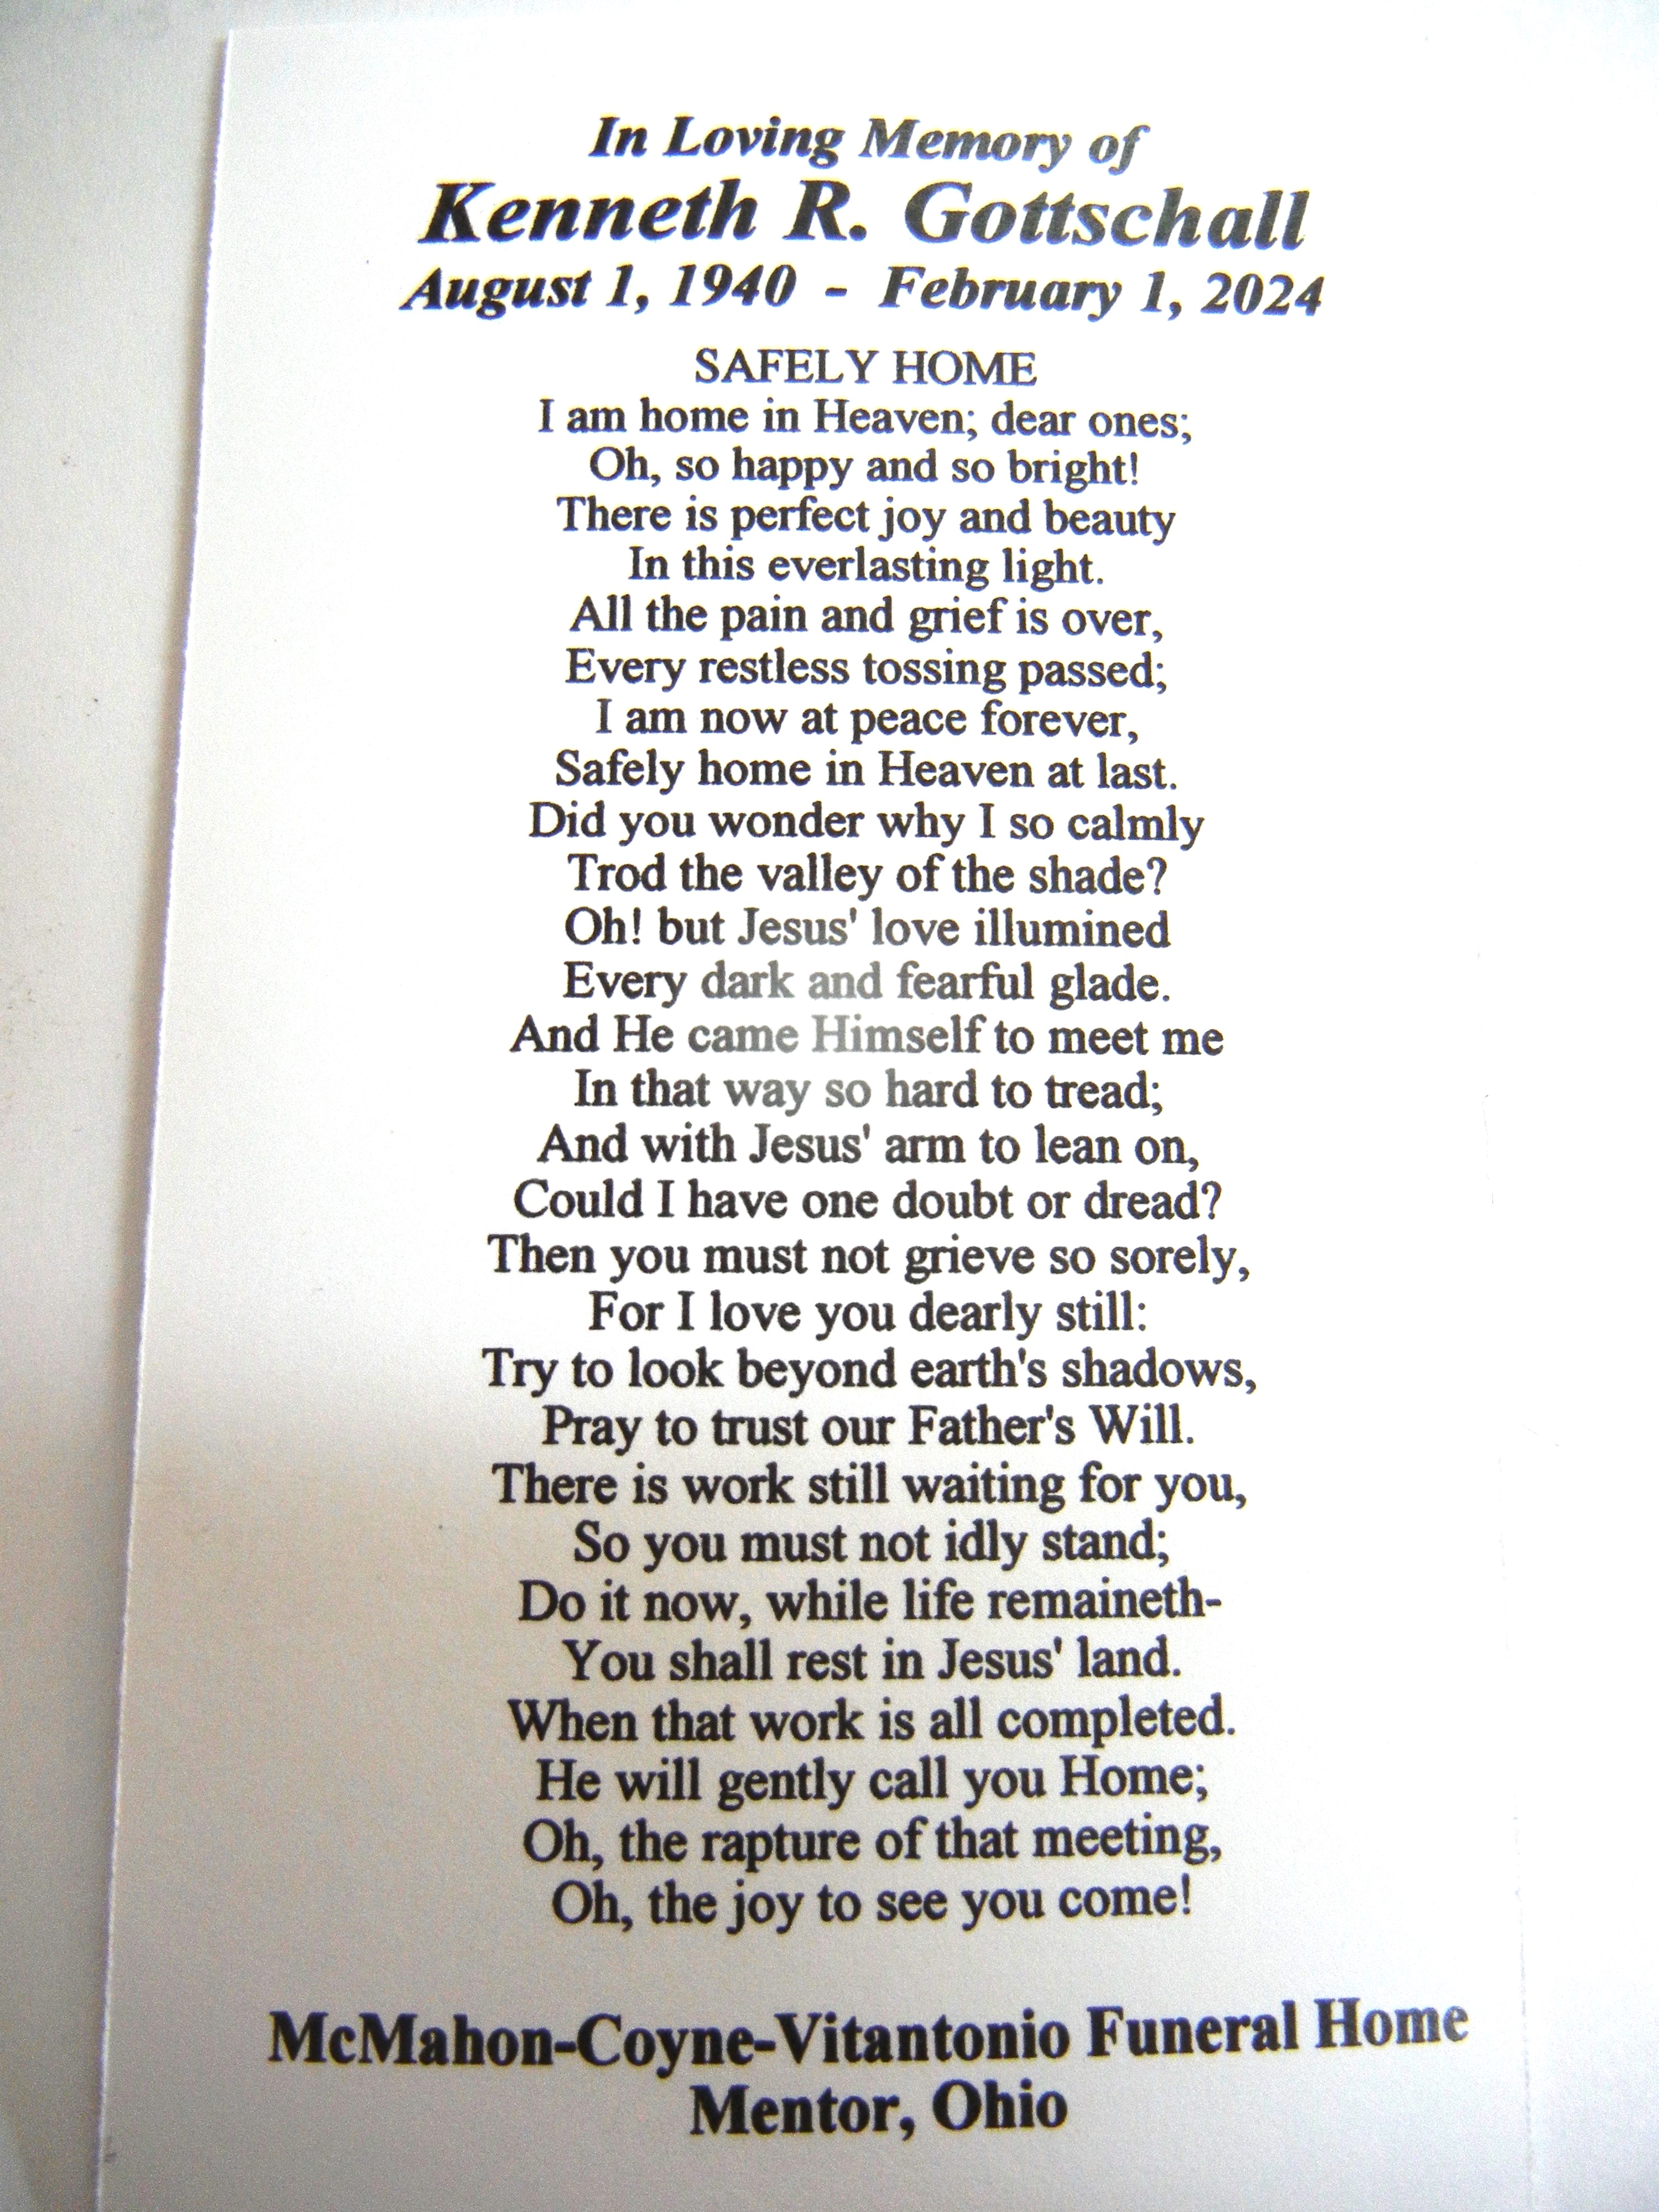 In Loving Memory of
Kenneth R. Gottschall
August 1, 1940 - February 1, 2024
SAFELY HOME
I am home in Heaven; dear ones;
Oh, so happy and so bright!
There is perfect joy and beauty
In this everlasting light.
All the pain and grief is over,
Every restless tossing passed;
I am now at peace forever,
Safely home in Heaven at last.
Did you wonder why I so calmly
Trod the valley of the shade?
Oh! but Jesus' love illumined
Every dark and fearful glade.
And He came Himself to meet me
In that way so hard to tread;
And with Jesus' arm to lean on,
Could I have one doubt or dread?
Then you must not grieve so sorely,
For I love you dearly still:
Try to look beyond earth's shadows,
Pray to trust our Father's Will.
There is work still waiting for you,
So you must not idly stand;
Do it now, while life remaineth-
You shall rest in Jesus' land.
When that work is all completed.
He will gently call you Home;
Oh, the rapture of that meeting,
Oh, the joy to see you come!
McMahon-Coyne-Vitantonio Funeral Home
Mentor, Ohio